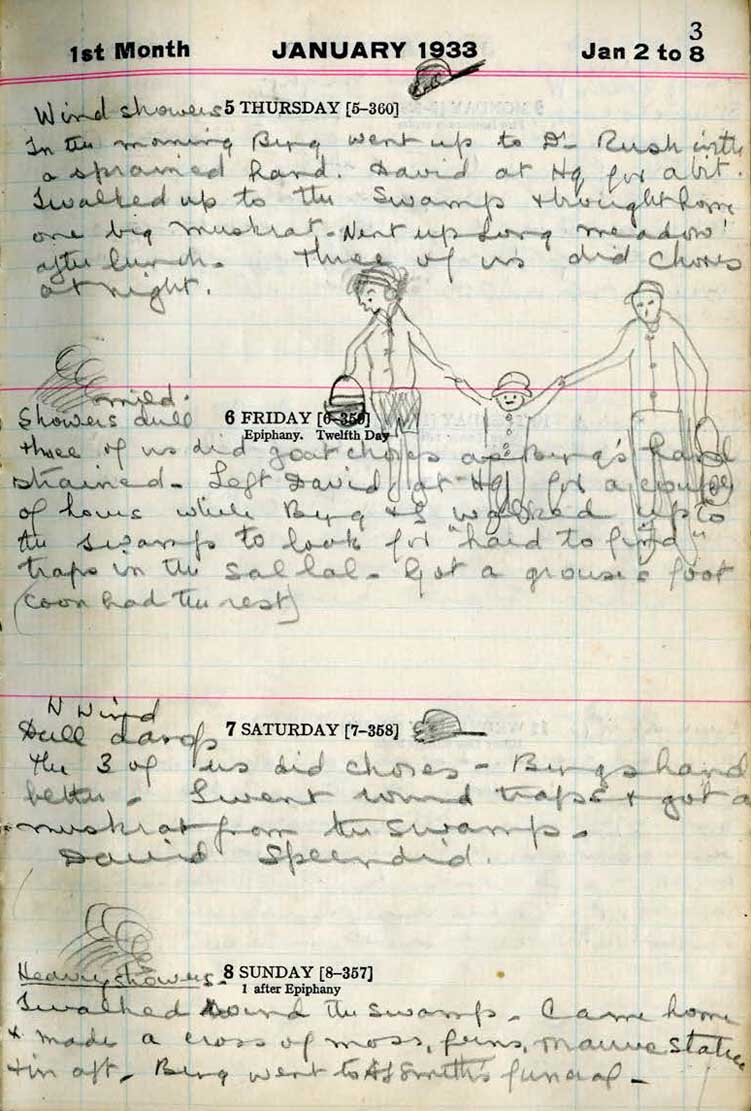 3
1st Month JANUARY 1933 Jan 2 to 8
Wind showers 5 THURSDAY [5-360]
In the morning Byng went up to Dr Rush with
a sprained hand. David at Hq for a bit.
I walked up to the Swamp + brought home
one big muskrat. Went up Long meadow
after lunch. Three of us did chores
at night.
mild.
Showers dull 6 FRIDAY [6-359]
Epiphany. Twelfth Day
three of us did goat chores as Byng's hand
strained. Left David at Hq for a couple
of hours while Byng + I walked up to
the swamp to look for "hard to find"
traps in the sal lal. Got a grouse's foot
(coon had the rest)
N Wind
Dull damp 7 SATURDAY [7-358]
The 3 of us did chores - Byngs hand
better. I went round traps + got a
muskrat from the swamp.
David Splendid.
Heavy showers. 8 SUNDAY [8-357]
1 after Epiphany
I walked round the swamp. Came home
+ made a cross of moss, ferns, mauve statice
+ in aft. Byng went to Smith's funeral -